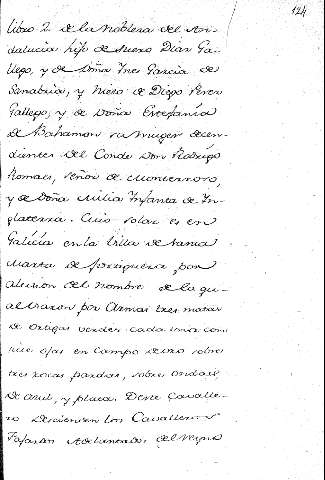 124
libro 2 de la Nobleza del An-
dalucia hijo de Suero Dias Ga-
llego, y de Doña Ines Garcia de
Sanabria, y nieto de Diego Perez
Gallego, y de Doña Estefania
de Bahamon su muger decen-
dientes del Conde Don Rodrigo
Romaes, señor de Monterroso,
y de Doña Milia Infanta de In-
glaterra. Cuio solar es en
Galicia en la Villa de Santa
Marta de Hortigueira, por
alusion del nombre de la qu-
al traxon por Armas tres matas
de ortigas verdes cada una con
siete ojas en campo de oro sobre
tres rocas pardas, sobre ondas
de azul, y plata. Deste Cavalle-
ro descienden los Cavalleros
Fajardos Adelantados del Reyno